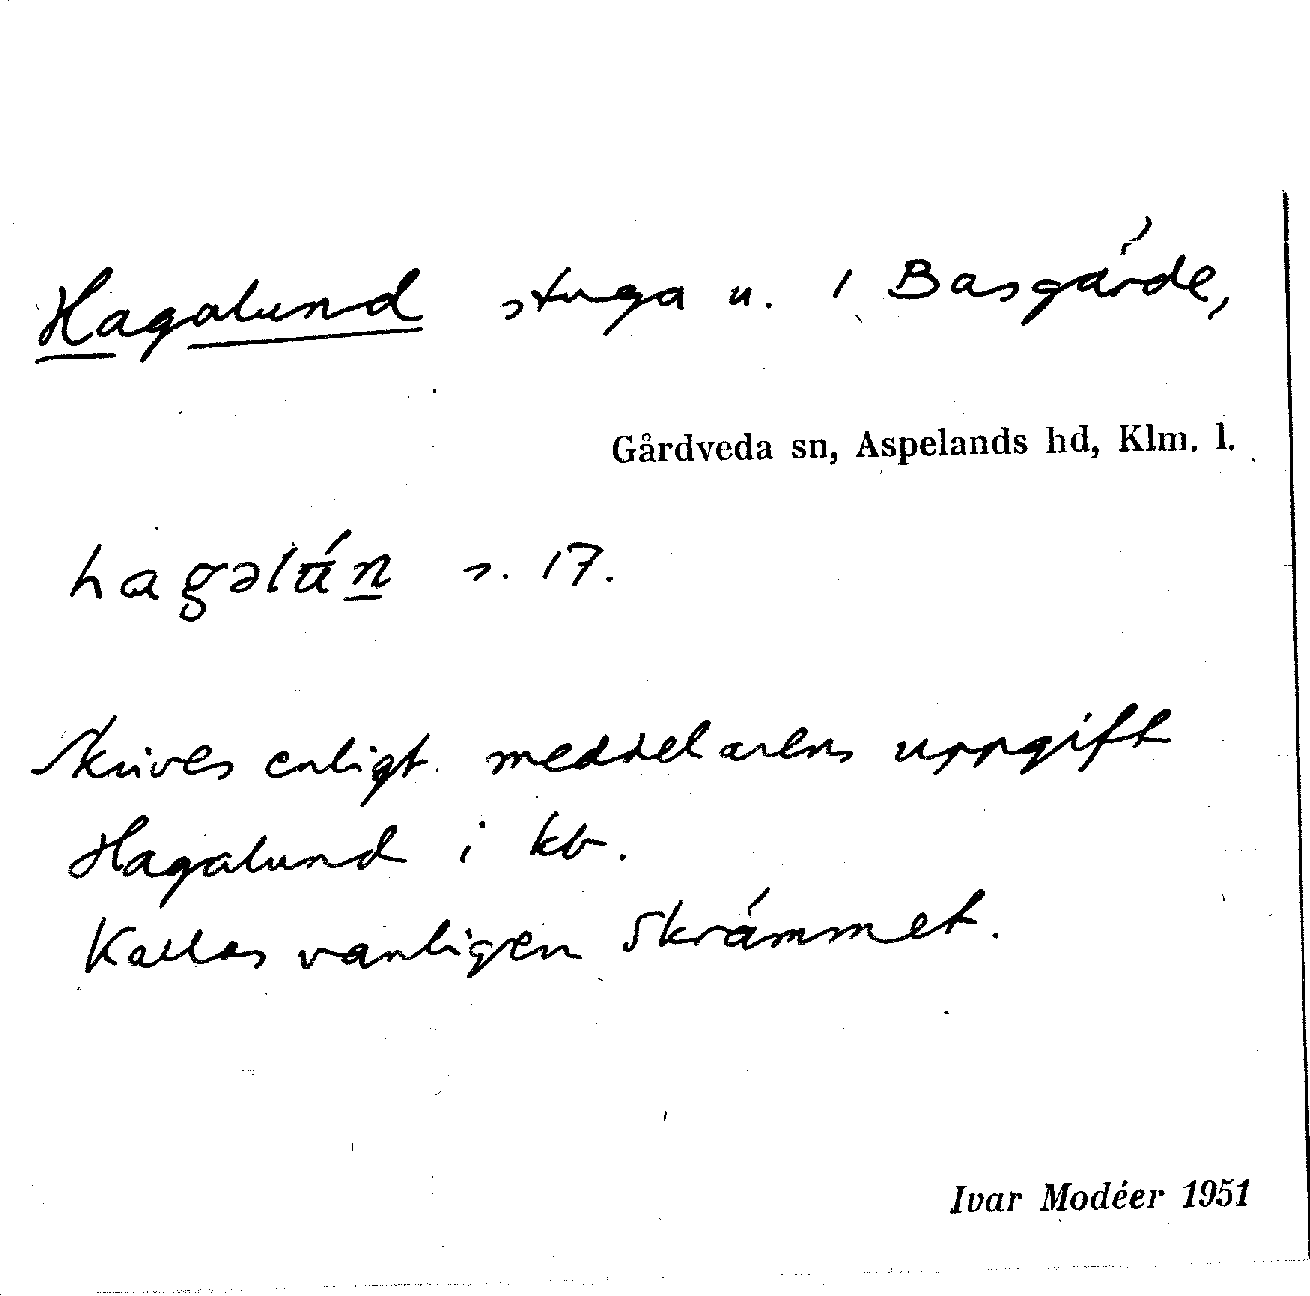 Hagalund stuga u. 1 Basgärde,
Gårdveda sn, Aspelands hd, Klm. l.
hagəlún s. 17.
Skrives enligt meddelarens uppgift
Hagalund i kb.
Kallas vanligen Skrämmet.
Ivar Modéer 1951